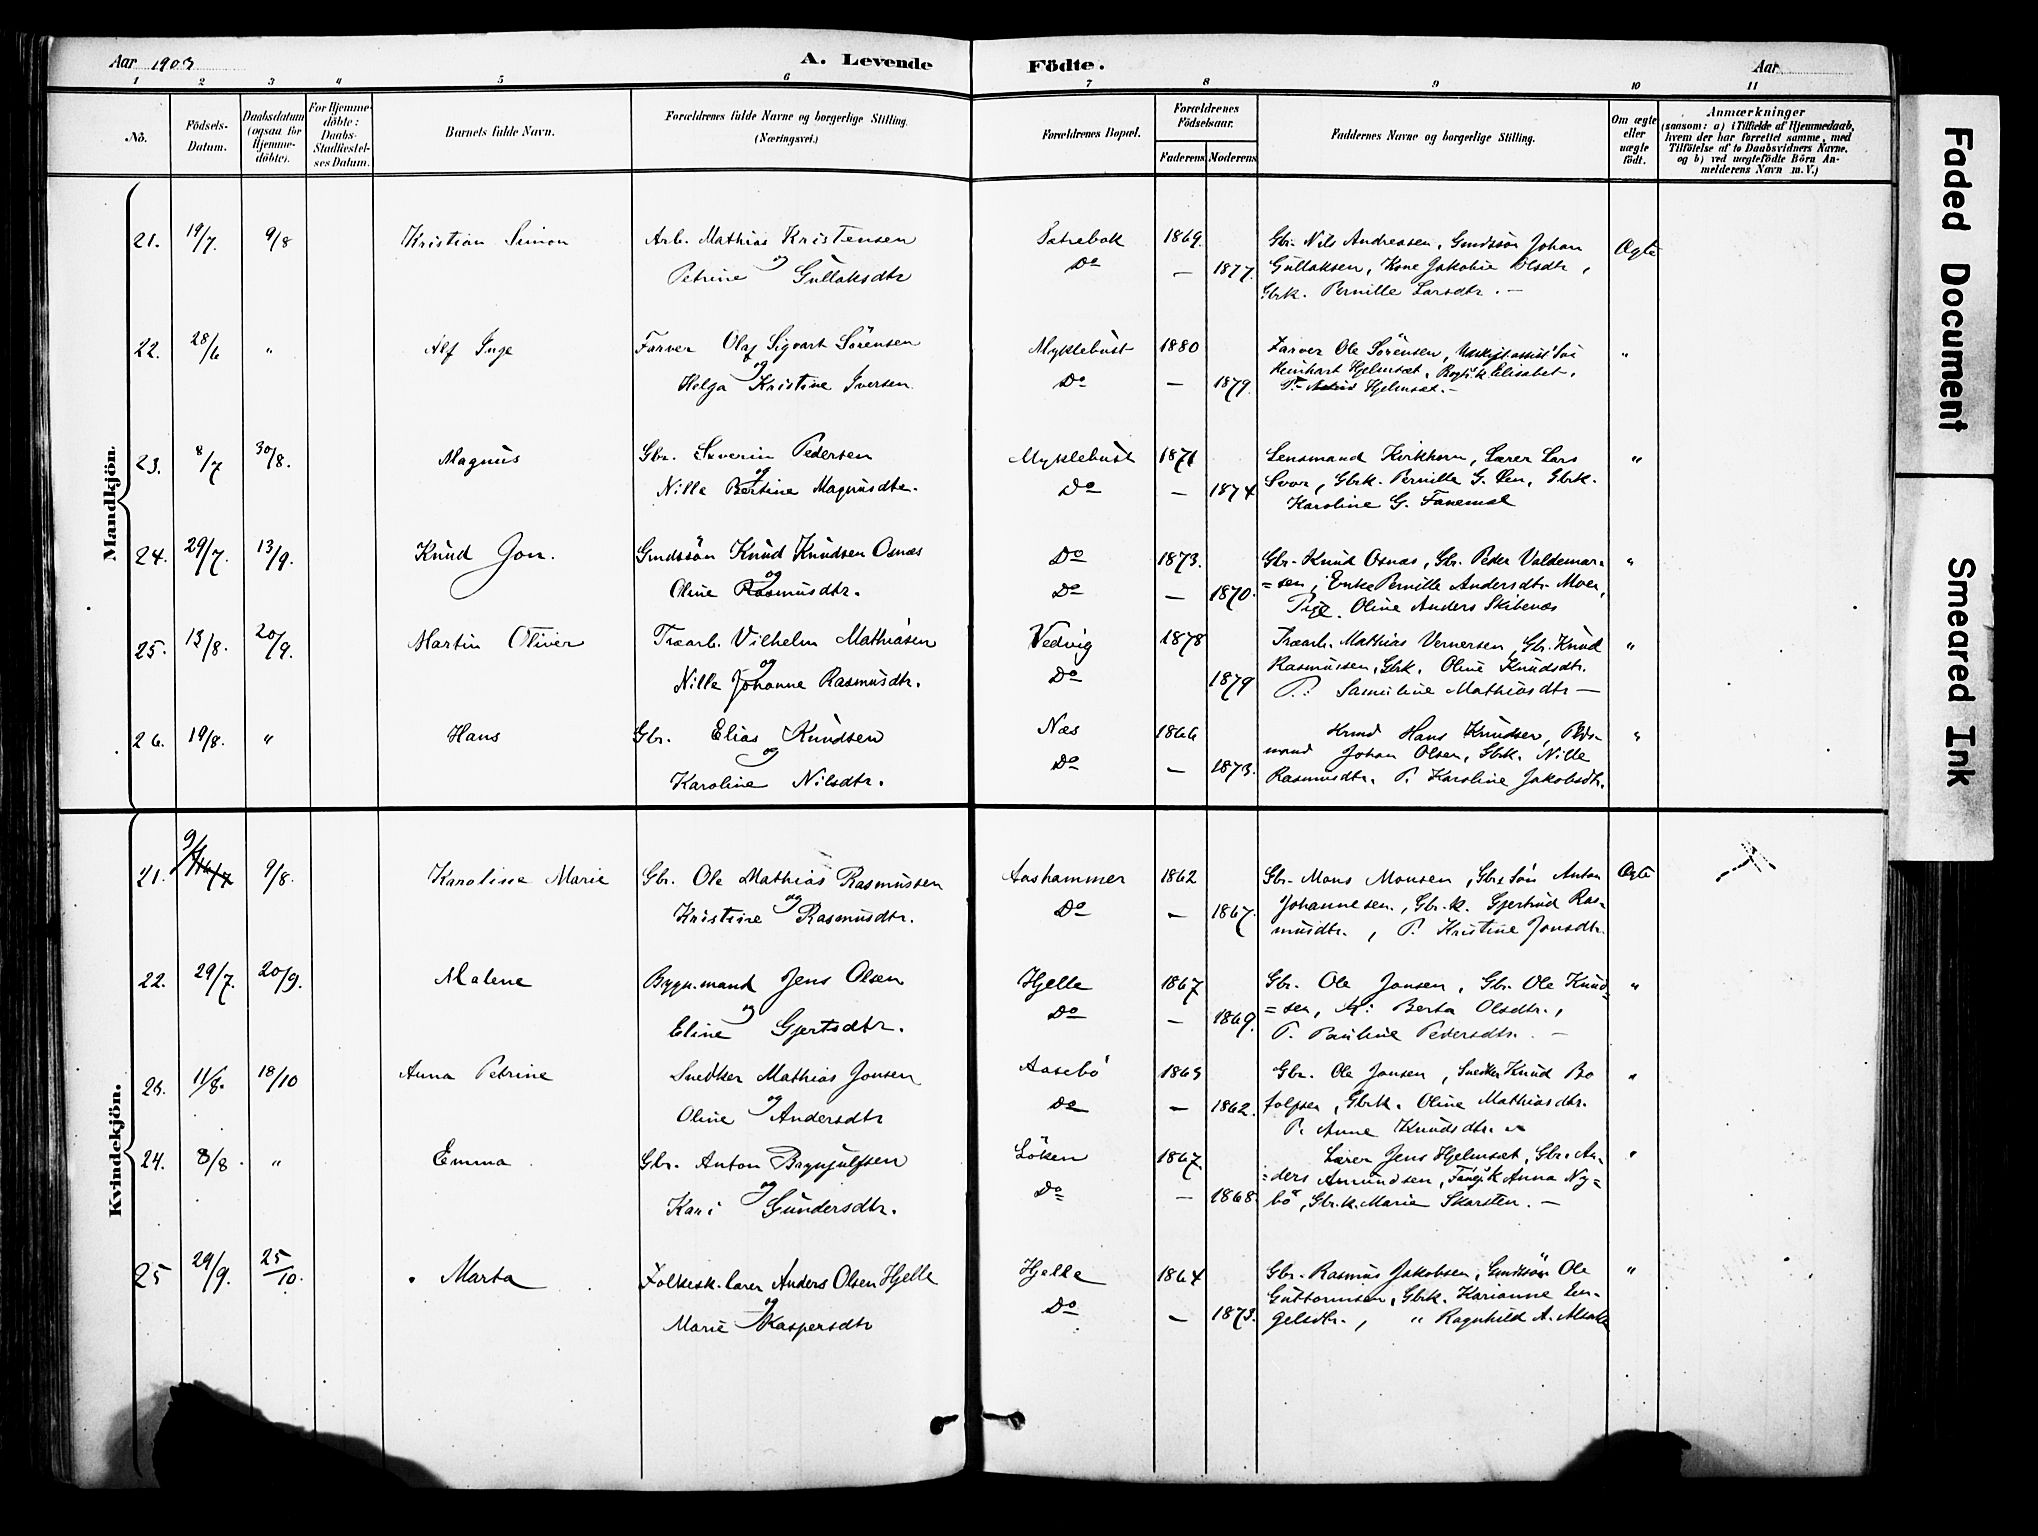 Aar 1903
A. Levende
Födte.
Aar
1 2 3 4 5 6 7 8 9 10 11
No.
Födsels-Datum.
Daabsdatum (ogsaa for Hjemme-döbte).
For Hjemme-döbte: Daabs-Stadfestel-ses Datum.
Barnets fulde Navn.
Forældrenes fulde Navne og borgerlige Stilling. (Næringsvei.)
Forældrenes Bopæl.
Forældrenes Födselsaar.
Faderens Moderens
Faddernes Navne og borgerlige Stilling.
Om ægte eller uægte födt.
Anmærkninger
(saasom: a) i Tilfælde af Hjemmedaab,
hvem der har forrettet samme, med
Tilföielse af to Daabsvidners Navne.
og b) ved uægtefödte Börn An-
melderens Navn m.V.)
Mandkjön.
21. 19/7. 9/8 Kristian Simon Arb. Mathias Kristensen 1869. Gbr. Nils Andreasen, Gmdssön Johan Ægte
og Petrine Gullaksdtr Do — 1877. Gullaksen, Kone Jakobie Olsdtr,
Gbrk. Pernille Larsdtr. —
22. 28/6 " Alf Inge Farver Olaf Sigvart Sörensen Myklebust 1880 Farver Ole Sörensen, "
og Helga Kristine Iversen Do — 1879. Reinhart Hjelmset, Elisabet,
Hjelmset. —
23. 8/7 30/8. Magnus Gbr. Severin Pedersen Myklebust 1871 Lensmand Kirkhorn, Lærer Lars "
og Nille Bertine Magnusdtr. Do — 1874 Gbrk. Pernille G. Gbrk.
Karoline G.
24. 29/7. 13/9. Knud Jon. Gmdssön Knud Knudsen Osnæs Do 1873. Gbr. Knud Osnæs, Gbr. Peder Valdemar= "
og Oline Rasmusdtr. Do — 1870. =sen, Enke Pernille Andersdtr. Moen,
Pige Oline Anders Skibenæs
25. 13/8. 20/9. Martin Oliver Træarb. Vilhelm Mathiasen Vedvig 1878 Træarb. Mathias Vernersen, Gbr. Knud "
og Nille Johanne Rasmusdtr. Do 1879 Rasmussen, Gbrk. Oline Knudsdtr.
P: Samuline Mathiasdtr —
26. 19/8. " Hans Gbr. Elias Knudsen Næs 1866 Hans Knudsen, "
og Karoline Nilsdtr. Do — 1873. mand Johan Olsen, Gbrk. Nille
Rasmusdtr. P. Karoline Jakobsdtr.
Kvindekjön.
21. 9/8. Karoline Marie Gbr. Ole Mathias Rasmussen Aashammer 1862 Gbr. Mons Monsen, Gbr. Sön Anton Ægte
og Kristine Rasmusdtr. Do — 1867. Johannesen, Gbr.k. Gjertrud Ras-
musdtr., P. Kristine Jonsdtr.
22. 29/7. 20/9. Malene Bygn.mand Jens Olsen Hjelle 1867 Gbr. Ole Jonsen, Gbr. Ole Knud= "
og Eline Gjertsdtr. Do — 1869. =sen, Berta Olsdtr.,
P. Pauline Pedersdtr. —
23. 11/8. 18/10 Anna Petrine Snedker Mathias Jonsen Aasebö Gbr. Ole Jonsen, Snedker Knud Bo "
og Oline Andersdtr Do — 1862. tolfsen, Gbrk. Oline Mathiasdtr.
P. Anne Knudsdtr.
24. 8/8. " Emma Gbr. Anton Brynjulfsen Löken 1867. Lærer Jens Hjelmset, Gbr. An= "
og Kari Gundersdtr. Do — 1868. =ders Amundsen, Anna Ny=
bö, Gbr.k. Marie Skarsten. —
25 29/9. 25/10. Marta Folkesk. lærer Anders Olsen Hjelle Hjelle 1864 Gbr. Rasmus Jakobsen, Gmdssön Ole "
og Marie Kaspersdtr Do — 1873. Guttormsen, Gbrk. Karianne En-
gelsdtr., " Ragnhild A.
Faded Document
Smeared Ink